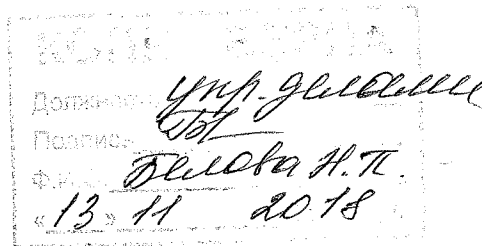 КОПИЯ ВЕРНА
Должность упр. делами
Подпись
Ф.И.О. Белова Н.П.
«13» 11 2018